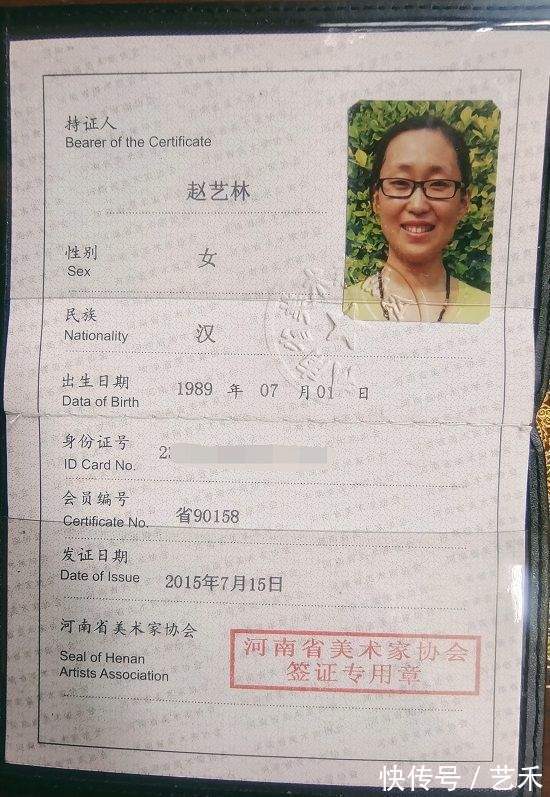 持证人
Bearer of the Certificate
赵艺林
性别 女
Sex
民族
Nationality 汉
出生日期 1989 年 07 月 01 日
Data of Birth
身份证号 2
ID Card No.
会员编号
Certificate No. 省90158
发证日期
Date of Issue 2015年7月15日
河南省美术家协会
Seal of Henan
Artists Association
河南省美术家协会
签证专用章
快传号 / 艺禾